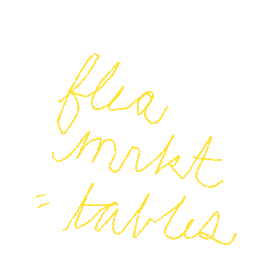 flea
mrkt
= tables